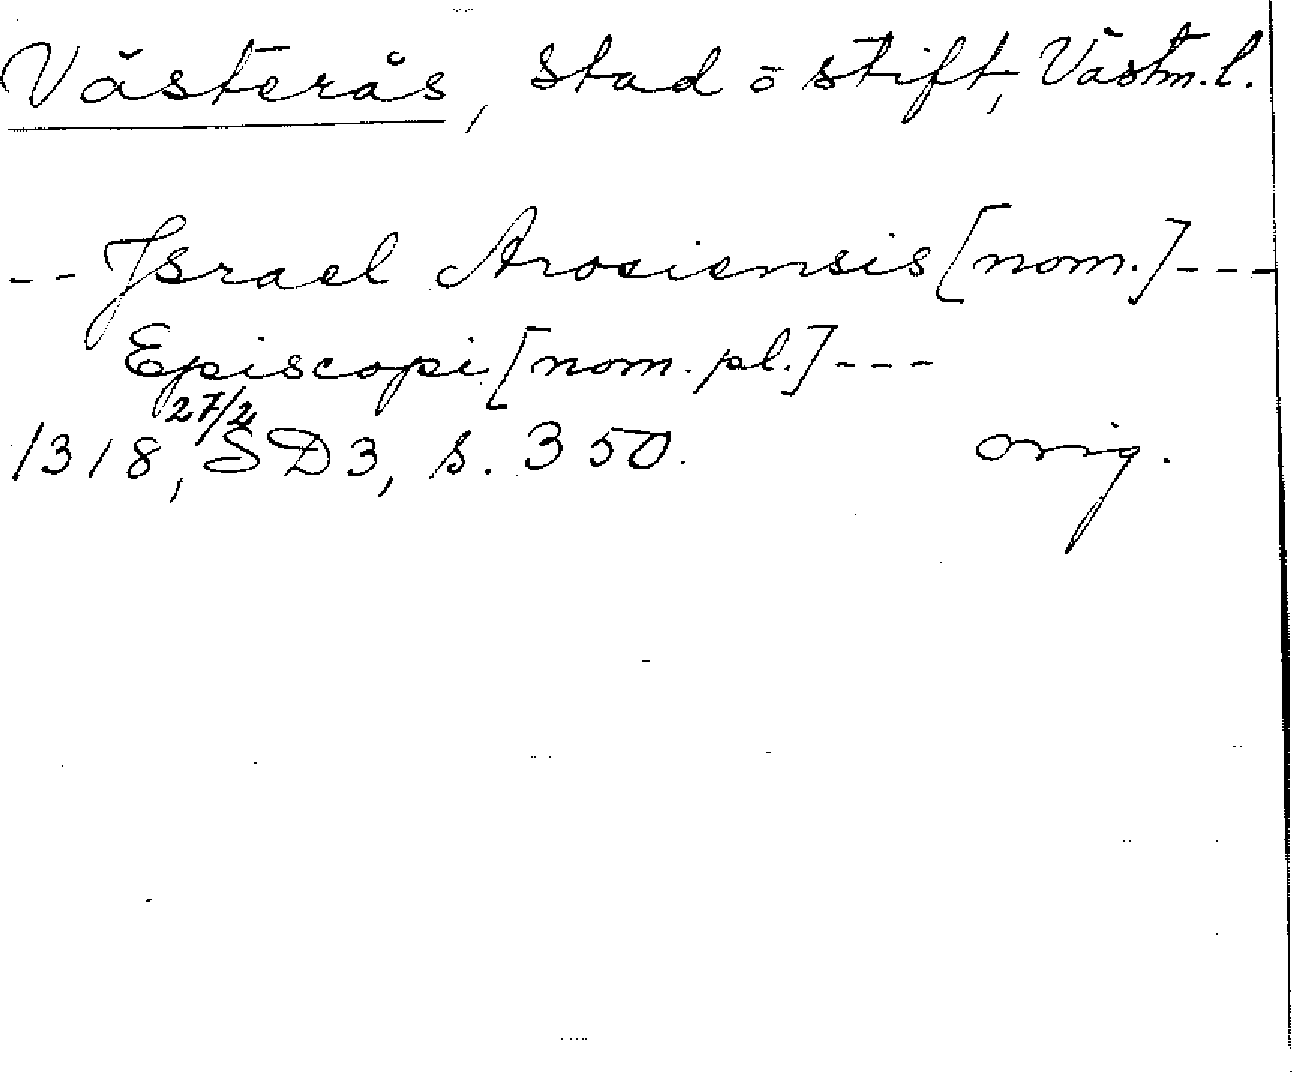 Västerås, stad o stift, Västm.l.
-- Israel Arosiensis [nom.] ---
Episcopi [nom. pl.] ---
27/2
1318, SD3, s. 350. orig.